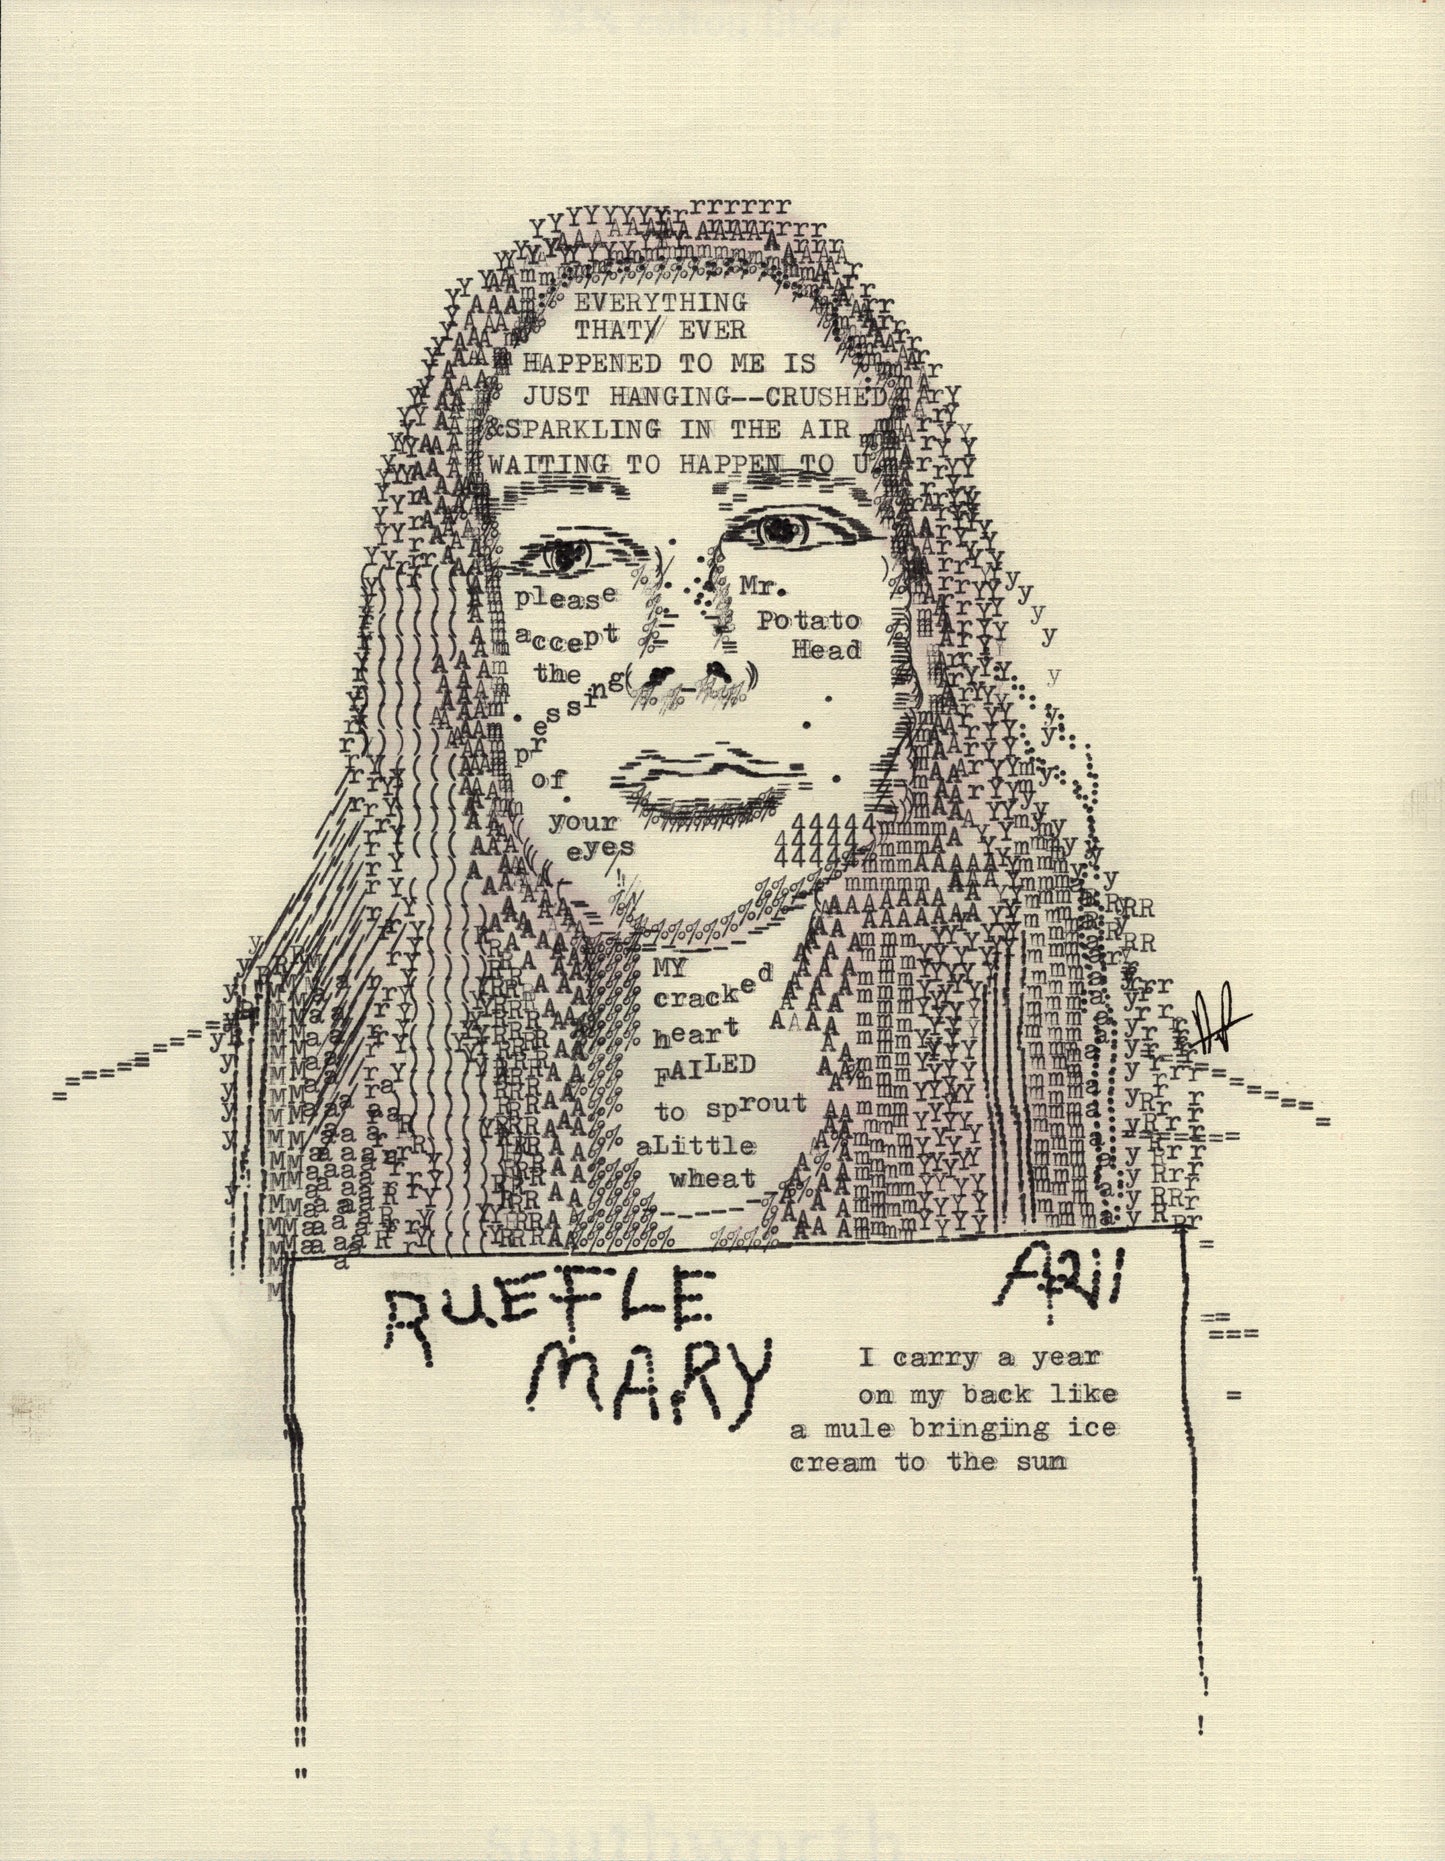 EVERYTHING
THAT/ EVER
HAPPENED TO ME IS
JUST HANGING--CRUSHED
&SPARKLING IN THE AIR
WAITING TO HAPPEN TO U
please
accept
the
pressing
of
your
eyes
Mr.
Potato
Head
44444
44444
44444
MY
cracked
heart
FAILED
to sprout
aLittle
wheat
RUEFLE
MARY
I carry a year
on my back like
a mule bringing ice
cream to the sun